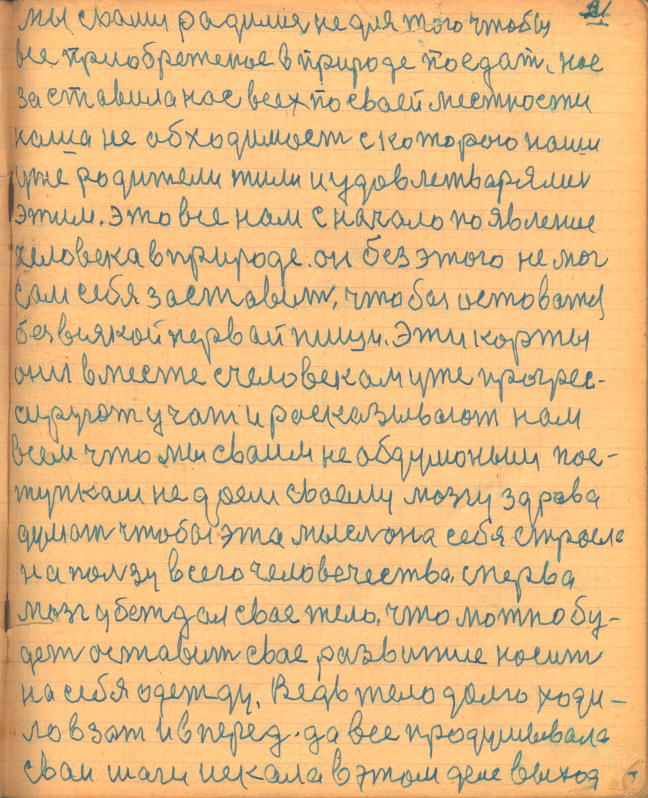 21
мы свами радилия не для того чтобы
все приобретеное в природе поедат. нас
заставила нас всех по сваей местности
наша не обходимост с которого наши
уже родители жили и удовлетварялис
этим. это все нам с начало появление
человека в природе. он без этого не мог
сам себя заставит, чтобы остоватся
без всякой первай пищи. Эти карты
они вместе с человекам уже прогрес-
сируют учат и расказывают нам
всем что мы сваим не обдуманым пос-
тупкам не даем сваему мозгу здрава
думат чтобы эта мысл она себя строела
на ползу всего человечества. сперва
мозг убеждал свае тело, что можно бу-
дет оставит свае развитие носит
на себя одежду. Ведь тело долго ходи-
ло взат и вперед. да все продумывала
сваи шаги искала в этом деле выход